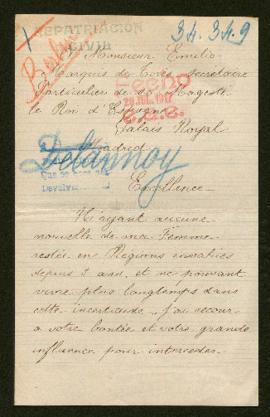 34.34.9
REPATRIACIÓN
CIVIL
Monsieur Emilio
Marquis de Torres Secrétaire
Particulier de Sa Magesté
le Roi d'Espagne
Palais Royal
Madrid
Delannoy
Excellence
N'ayant aucune
nouvelle de ma Femme
restée en Régions envahies
depuis 3 ans, et ne pouvant
vivre plus longtemps dans
cette incertitude, j'ai recour
a votre bontée et votre grande
influence pour intercéder